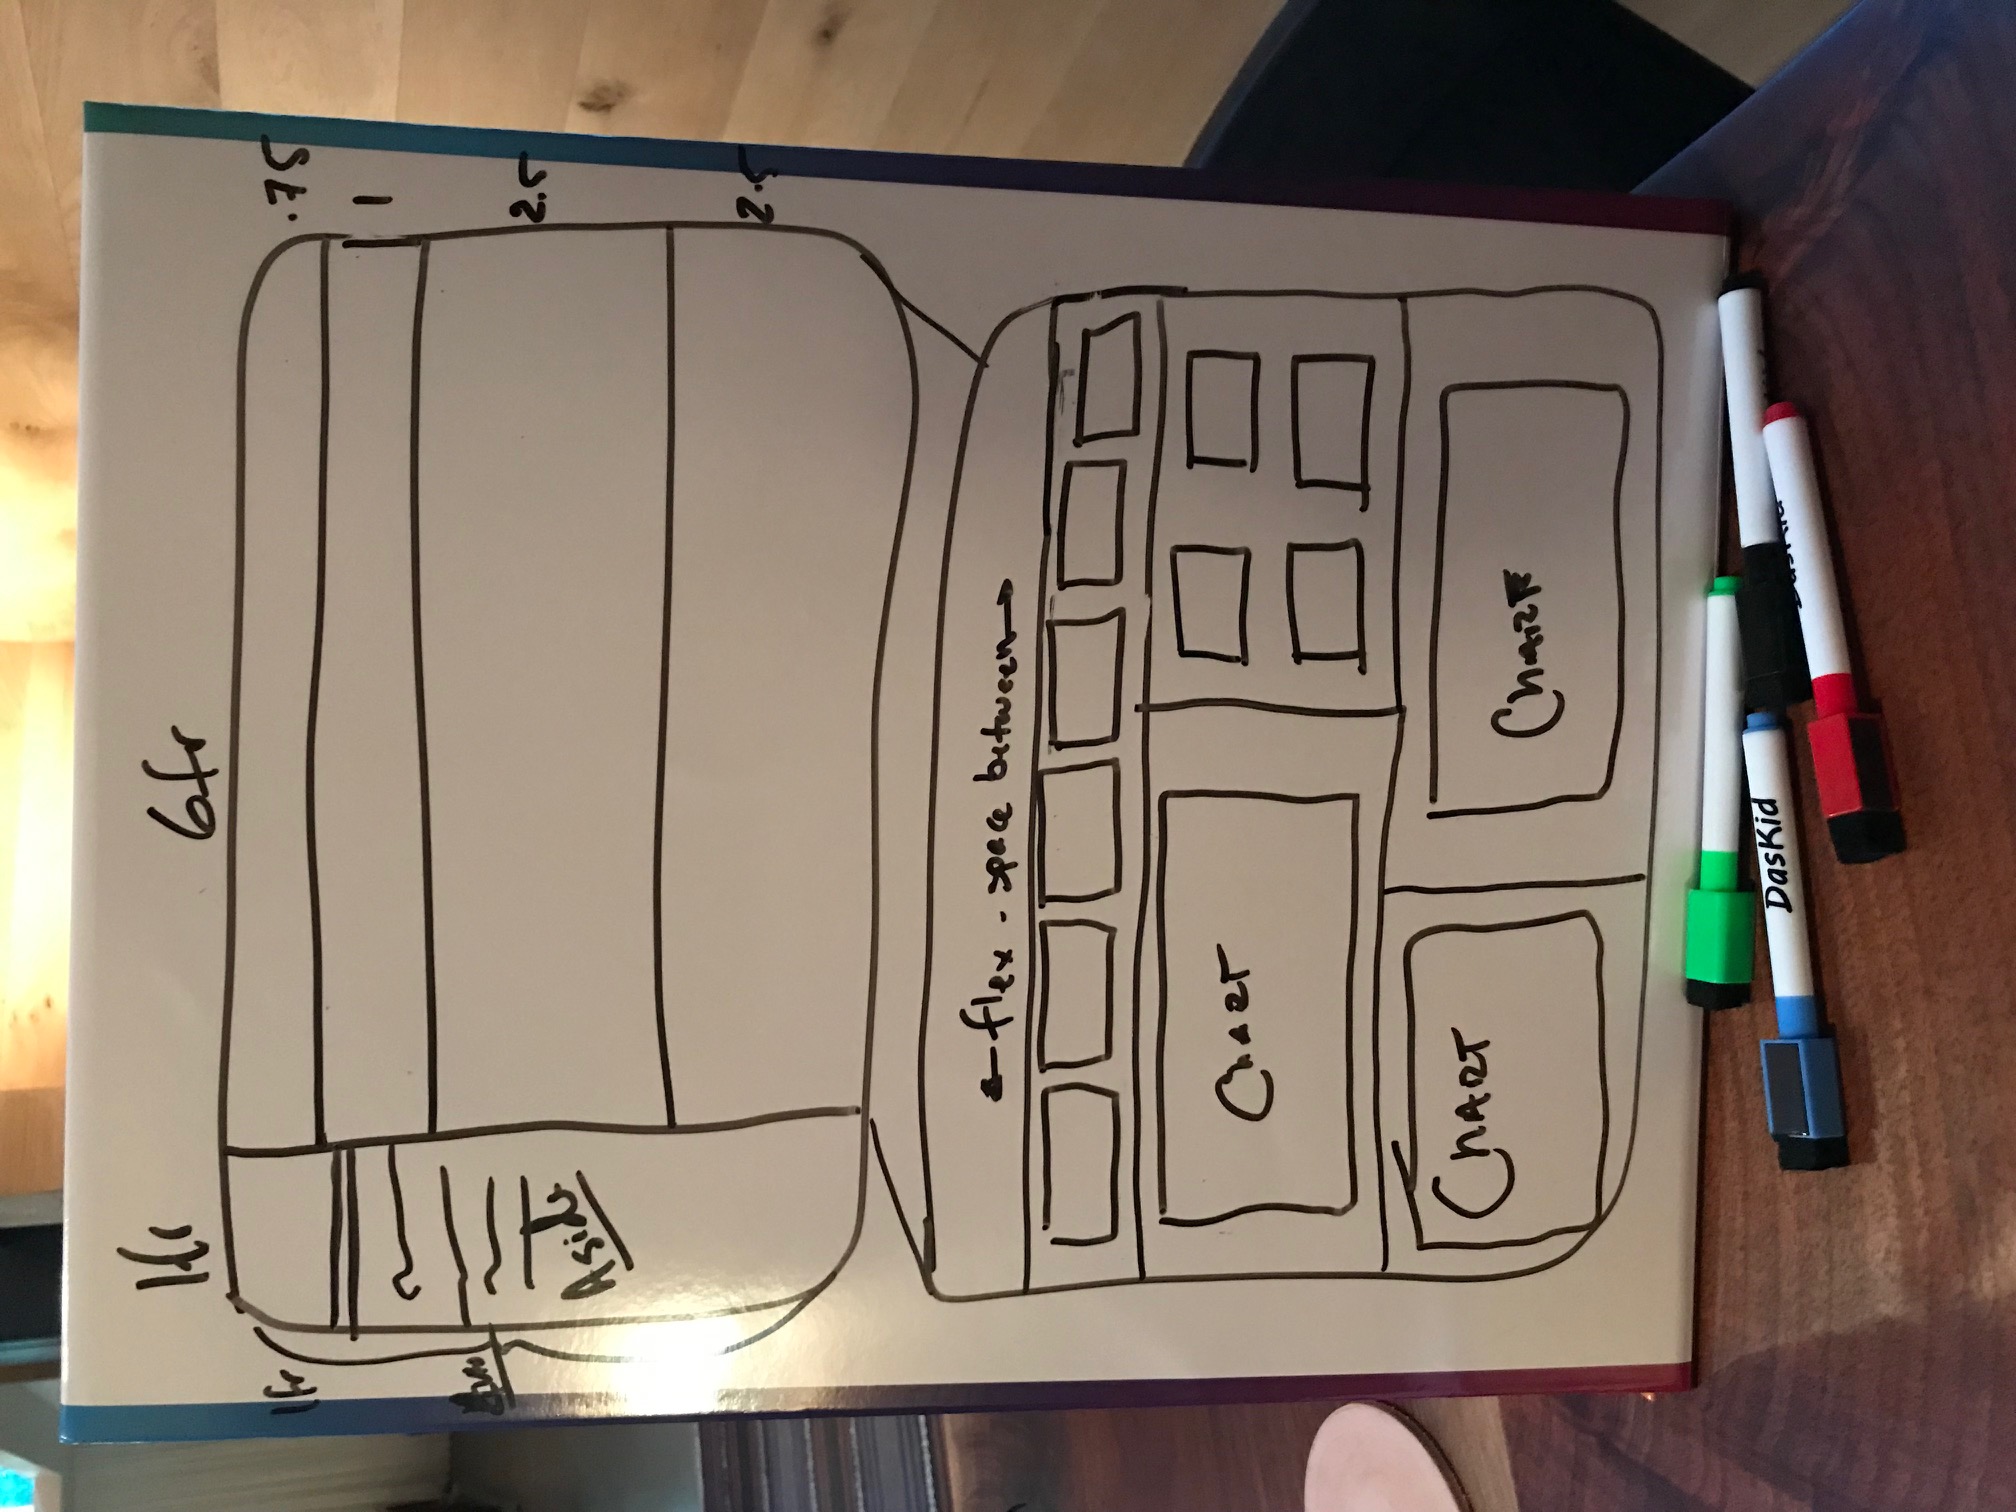 1fr
6fr
1fr
.75
1
2.5
2.5
Aside
flex - space between
CHART
CHART
CHART
DasKid
DasKid